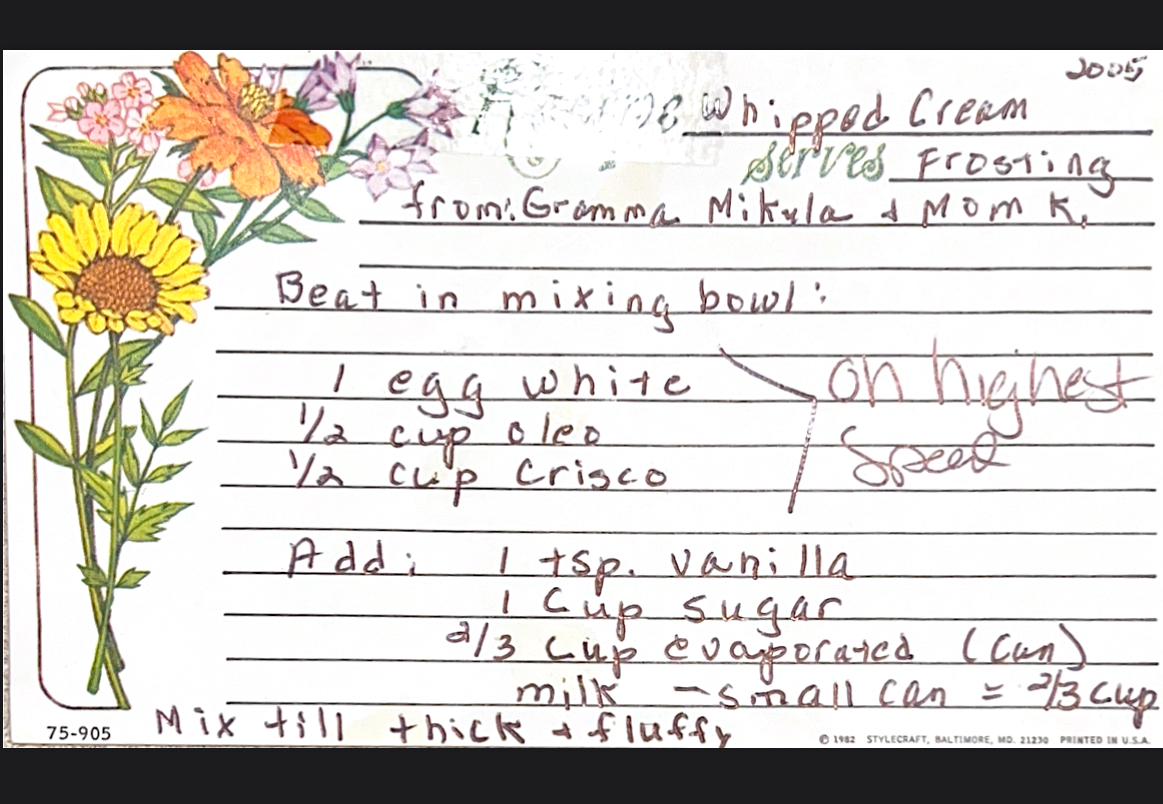 2005
Whipped Cream
serves Frosting
from: Gramma Mikula + Mom K.
Beat in mixing bowl:
1 egg white
1/2 cup oleo
1/2 cup Crisco
on highest
Speed
Add: 1 tsp. vanilla
1 Cup sugar
2/3 cup evaporated (can)
milk - small can = 2/3 cup
Mix till thick + fluffy
75-905
© 1982 STYLECRAFT, BALTIMORE, MD. 21230 PRINTED IN U.S.A.